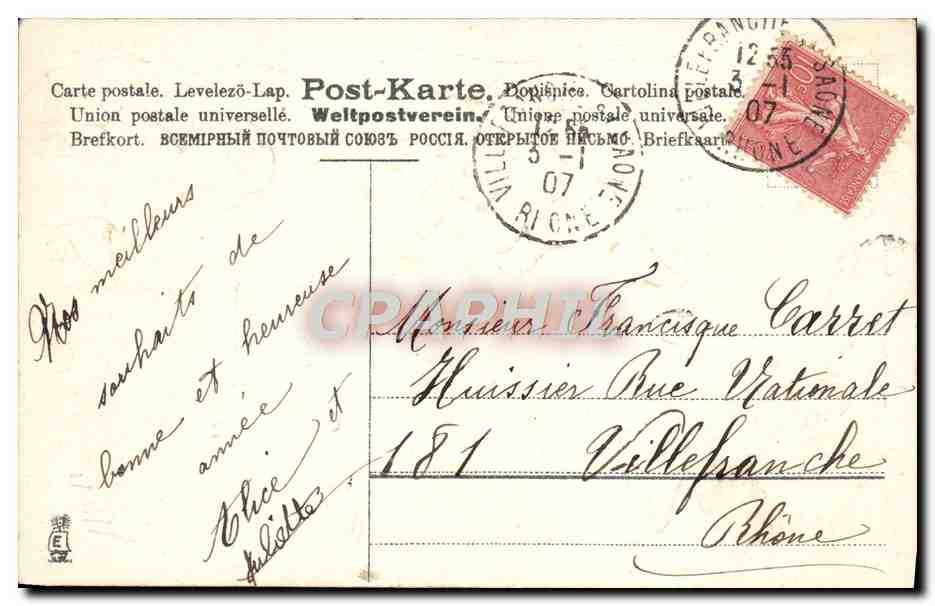 Carte postale. Levelezö-Lap. Post-Karte. Dopisnice. Cartolina postale.
Union postale universelle. Weltpostverein. Unione postale universale.
Brefkort. ВСЕМІРНЫЙ ПОЧТОВЫЙ СОЮЗЪ РОССІЯ. ОТКРЫТОЕ ПИСЬМО. Briefkaart
VILLEFRANCHE S. SAONE
12 35
3 - 1
07
RHONE
3 - 1
07
RHONE
10
Nos meilleurs
souhaits de
bonne et heureuse
année
Alice et
Juliette
Monsieur Francisque Carret
Huissier Rue Nationale
181 Villefranche
Rhône
CPAPHIL
E